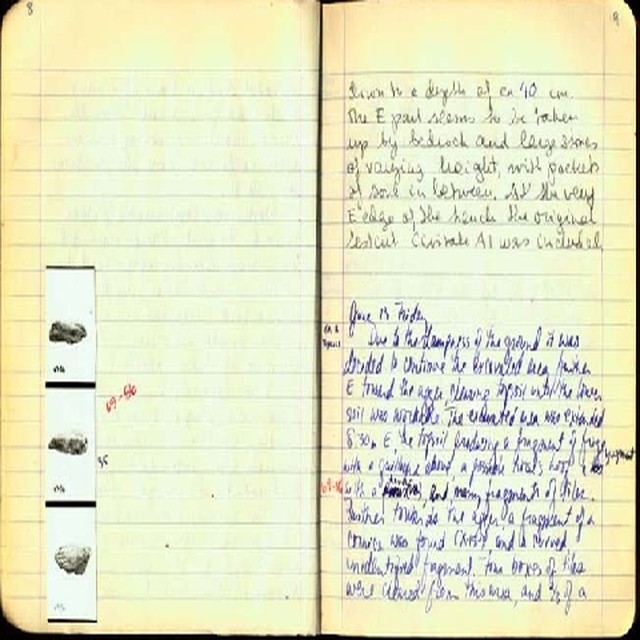 8
69-56
35
9
down to a depth of ca 40 cm.
The E part seems to be taken
up by bedrock and large stones
of varying height, with pockets
of soil in between. At the very
E edge of the trench the original
testcut Civitate A1 was included
June 13 Friday
Due to the dampness of the ground it was
decided to continue the excavated area further
E toward the agger clearing topsoil until the lower
soil was workable. The excavated area was extended
E the topsoil producing a fragment of frieze
with a above, a possible hoof
with a and many fragments of tiles.
Further towards the agger a fragment of a
cornice was found and a curved
unidentified fragment. Four boxes of tiles
were cleared from this area, and of a